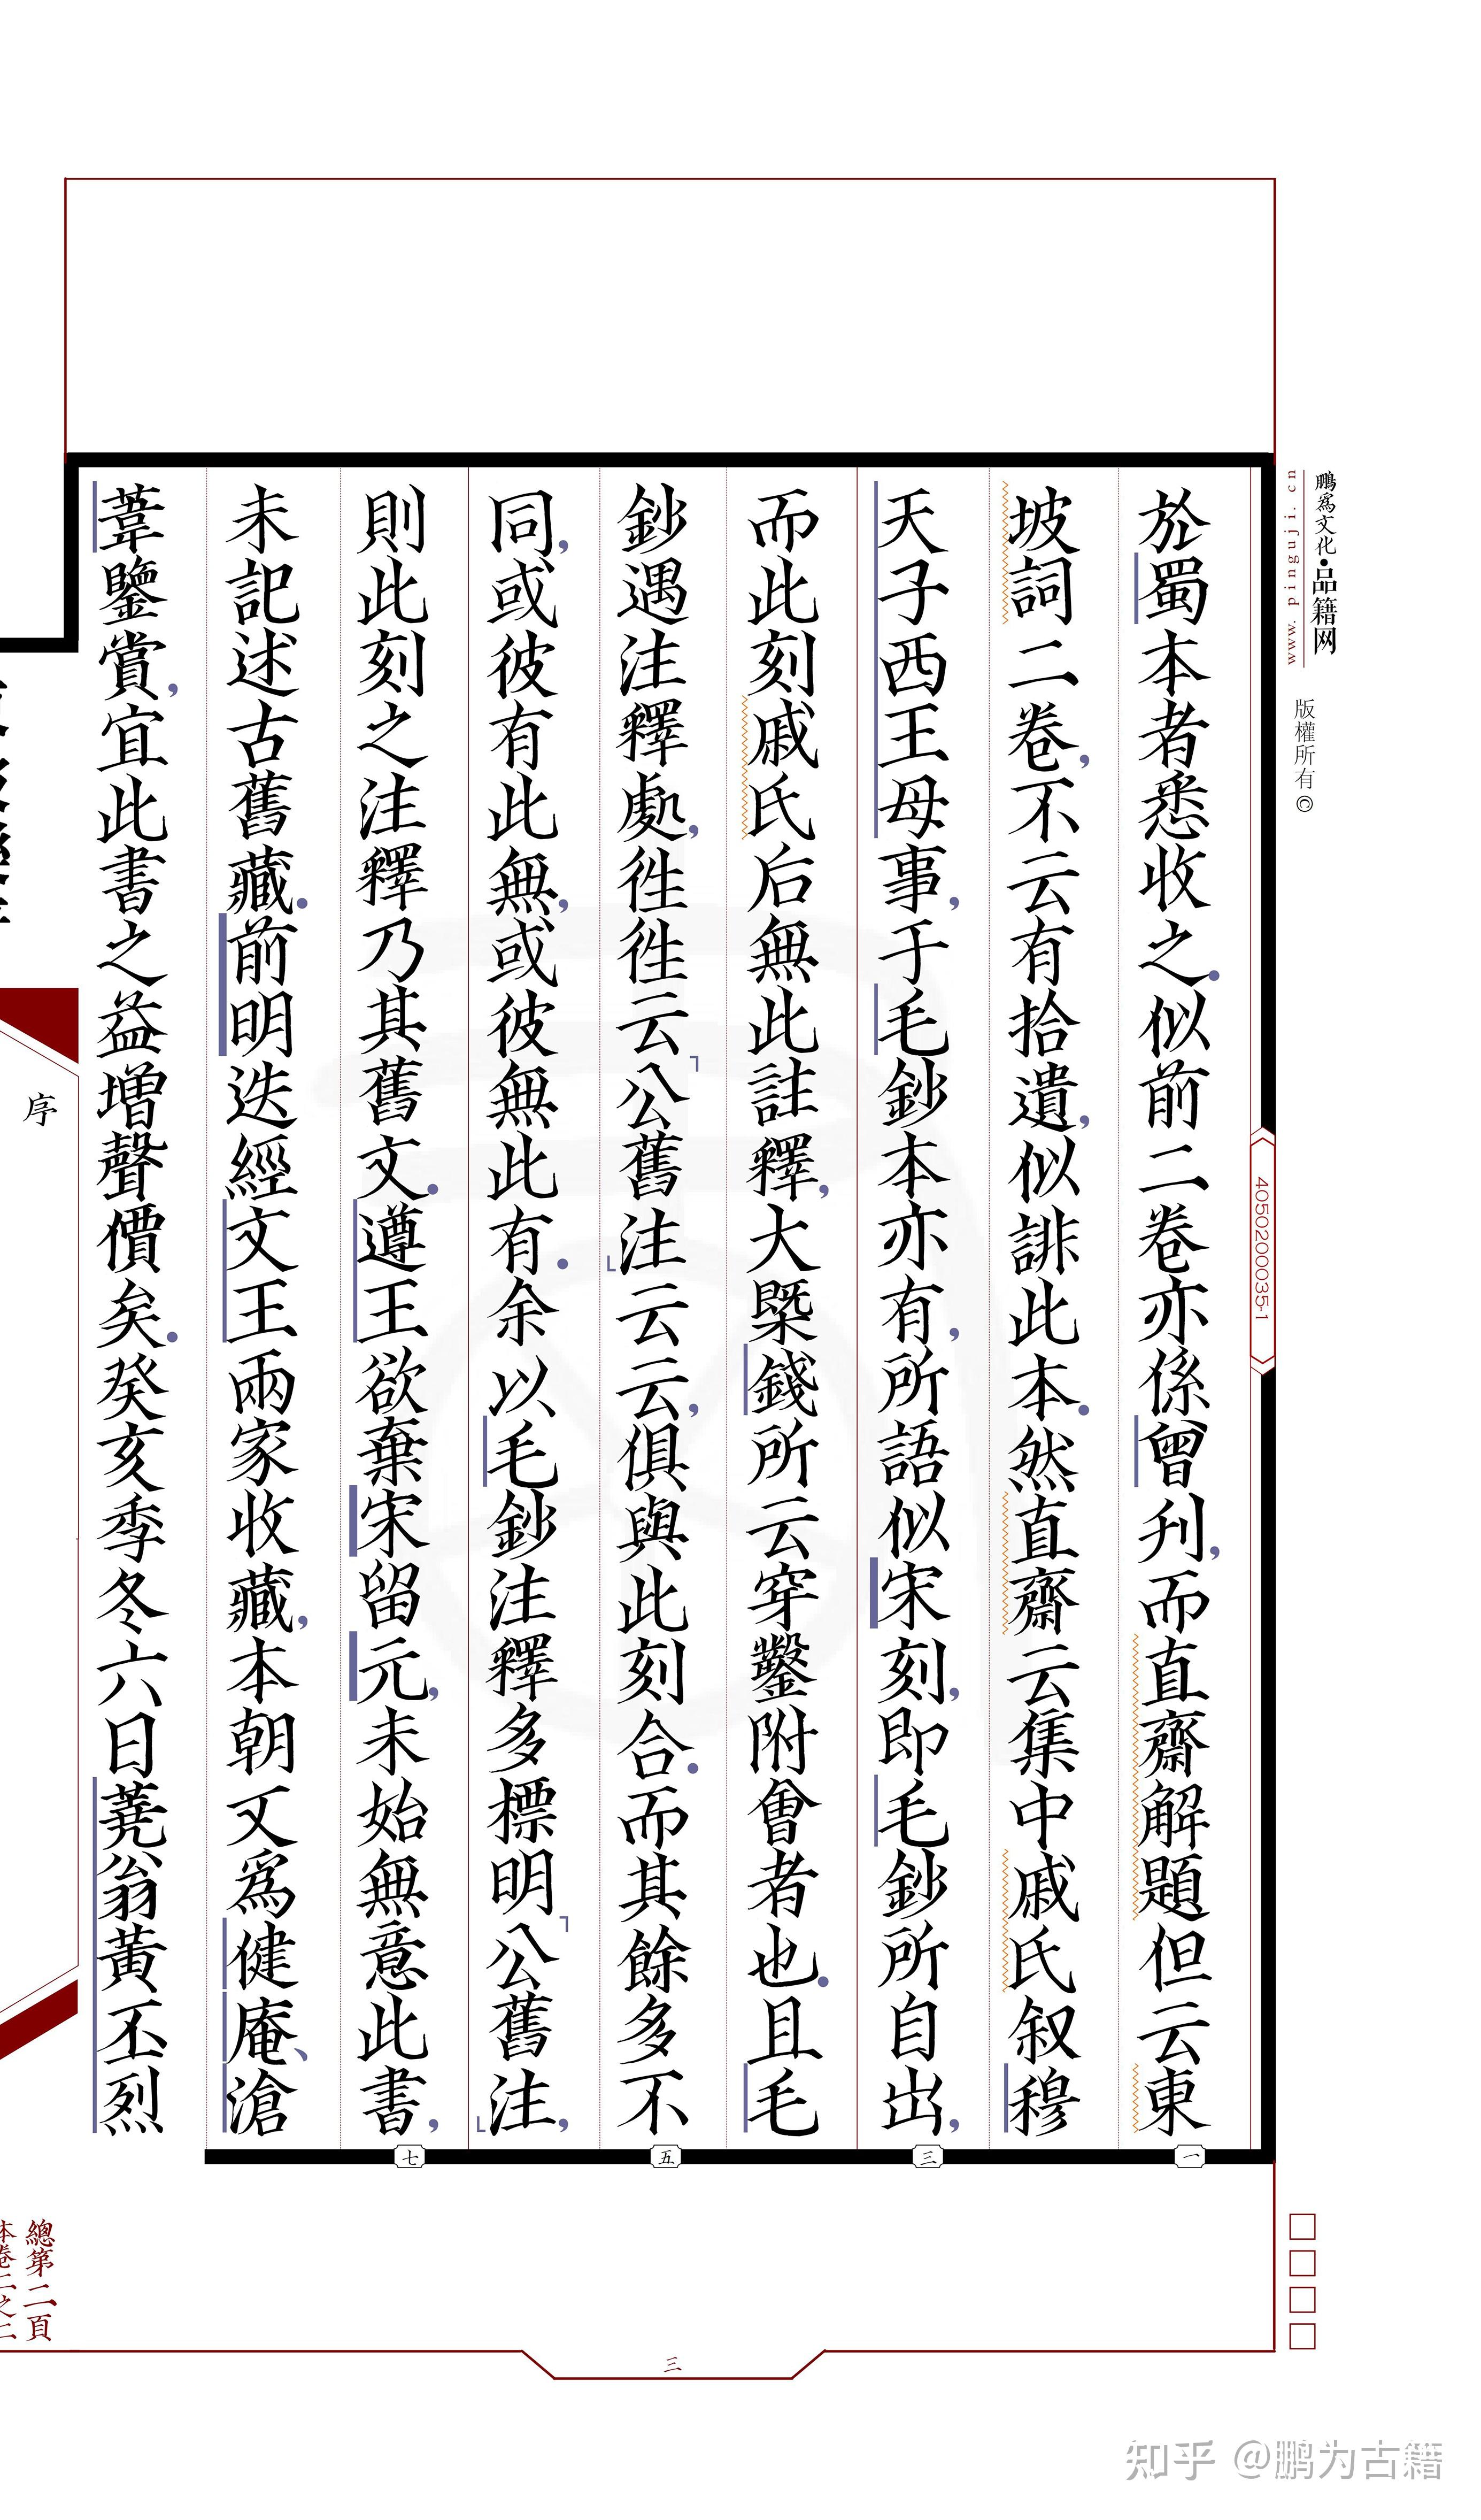 於蜀本者悉收之。似前二卷亦係曾刊，而直齋解題但云東
坡詞二卷，不云有拾遺，似誹此本。然直齋云集中戚氏叙穆
天子西王母事，于毛鈔本亦有，所語似宋刻，即毛鈔所自出，
而此刻戚氏后無此註釋，大槩錢所云穿鑿附會者也。且毛
鈔遇注釋處，徃徃云「公舊注」云云，俱與此刻合。而其餘多不
同，或彼有此無，或彼無此有。余以毛鈔注釋多標明「公舊注」，
則此刻之注釋乃其舊文。遵王欲棄宋留元，未始無意此書，
未記述古舊藏。前明迭經文王兩家收藏，本朝又爲健庵、滄
葦鑒賞，宜此書之益增聲價矣。癸亥季冬六日蕘翁黃丕烈
鵬爲文化•品籍网
www.pinguji.cn
版權所有©
4050200035-1
一
三
五
七
序
總第二頁
三
知乎 @鹏为古籍